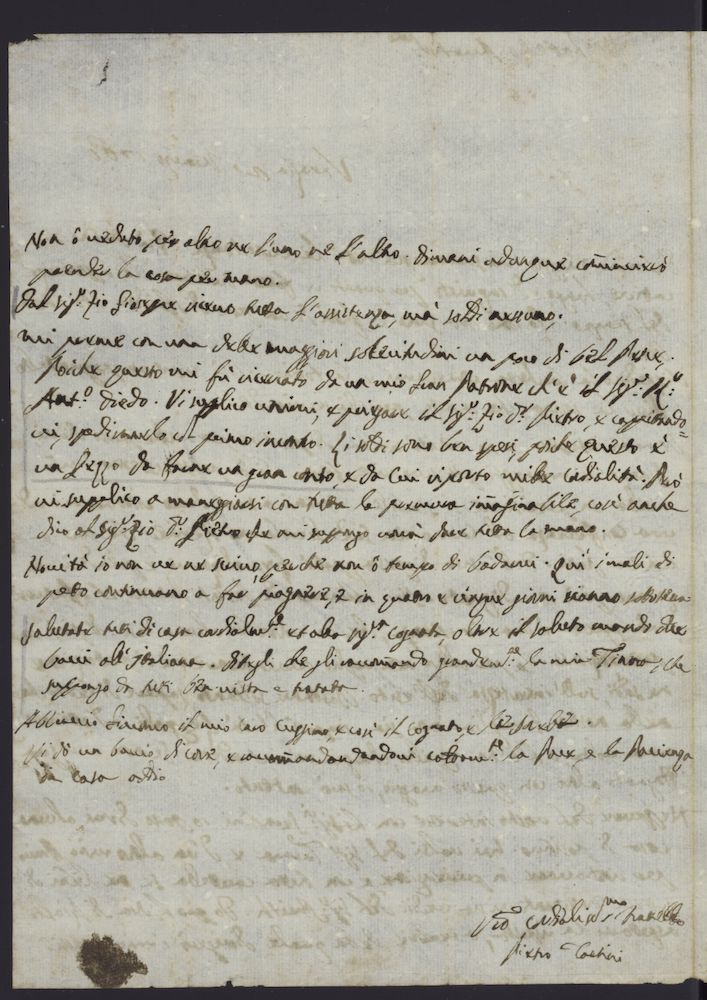 Non ô veduto per altro ne l'uno ne l'altro. Dimani adunque comincierò
prender la cosa per mano.
Dal Sig.r Zio Giuseppe viene tutta l'assistenza, mà soldi nessuno;
mi preme con una delle maggiori sollecitudini un poco di
Poiche questo mi fù ricercato da un mio Gran Patrone ch'è il Sig.r
Ant.o Diedo. Vi supplico unirvi, e pregare il Sig.r Zio D.n Pietro, e
vi, spedirmelo con primo incontro. Li soldi sono ben spesi, poiche questo è
un pezzo da farne un gran conto, e da cui riporto mille cordialità. Però
vi supplico a maneggiarvi con tutta la premura immaginabile, così anche
dico al Sig.r Zio D.n Pietro che mi suppongo vorrà dare tutta la mano.
Novità io non ve ne scrivo perche non ô tempo di badarvi. Qui i mali di
petto continuano a far piaghe, e in quatro e cinque giorni vanno sotto
Salutate tutti di casa cordialm.te et alla Sig.ra Cognata oltre il saluto mando due
bacci all'Italiana. Ditegli che gli raccomando grandem.te la mia che
suppongo da tutti ben vista e tratata.
Abbraccio il mio caro Cuggino, e così il Cognato, e
Vi dò un baccio di core, e raccomandandovi caldam.te la Pace e la
di casa adio
V.ro Cordialiss.mo Fratello
Pietro